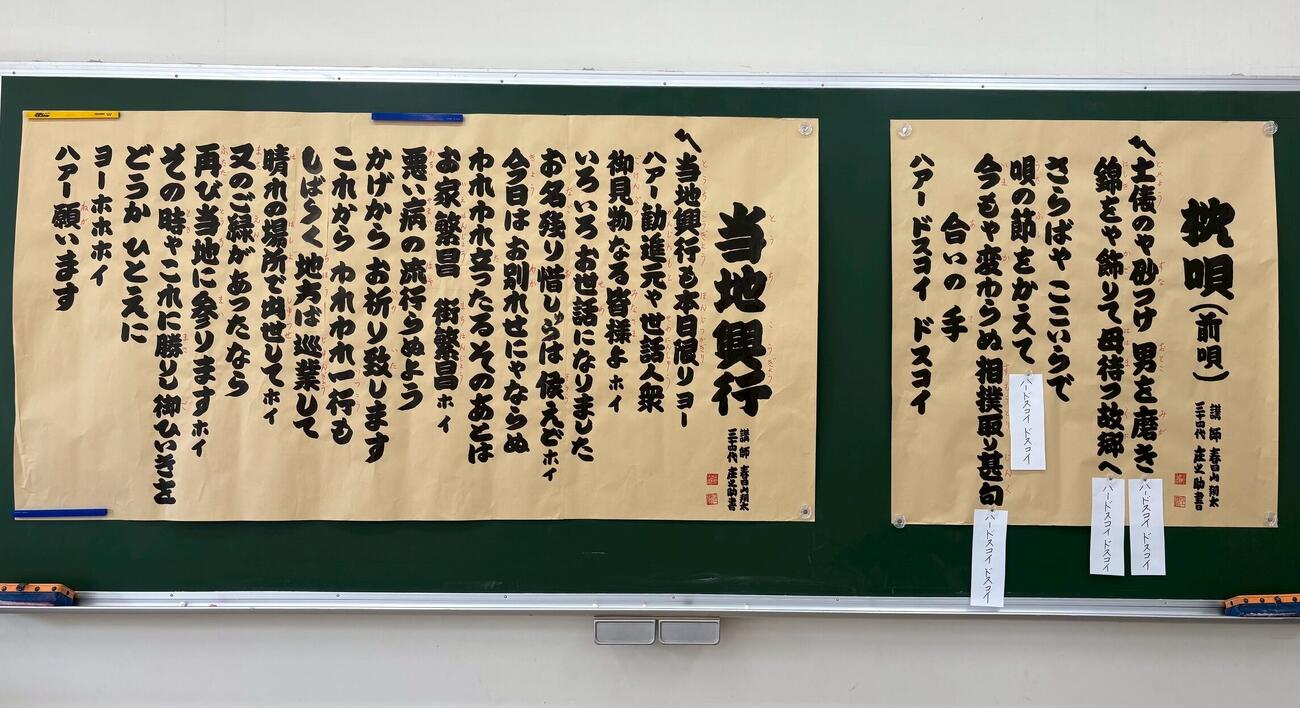 枕唄(前唄)
講師 春日山翔太
三十四代 庄之助書
〽土俵のや砂つけ 男を磨き
ハードスコイ ドスコイ
錦をや飾りて母待つ故郷へ
ハードスコイ ドスコイ
さらばや ここいらで
唄の節をかえて
ハードスコイ ドスコイ
今もや変わらぬ 相撲取り甚句
ハードスコイ ドスコイ
合いの手
ハアー ドスコイ ドスコイ
当地興行
講師 春日山翔太
三十四代 庄之助書
〽当地興行も本日限りヨー
ハアー 勧進元や世話人衆
御見物なる皆様よ ホイ
いろいろお世話になりました
お名残り惜しゅうは 候えどホイ
今日はお別れせにゃならぬ
われわれ立ったるそのあとは
お家繁昌 街繁昌 ホイ
悪い病の流行らぬよう
かげから お祈り致します
これから われわれ一行も
しばらく 地方ば巡業して
晴れの場所で出世して ホイ
又のご縁があったなら
再び当地に参ります ホイ
その時ゃこれに勝りし御ひいきを
どうか ひとえに
ヨーホホホイ
ハアー 願います